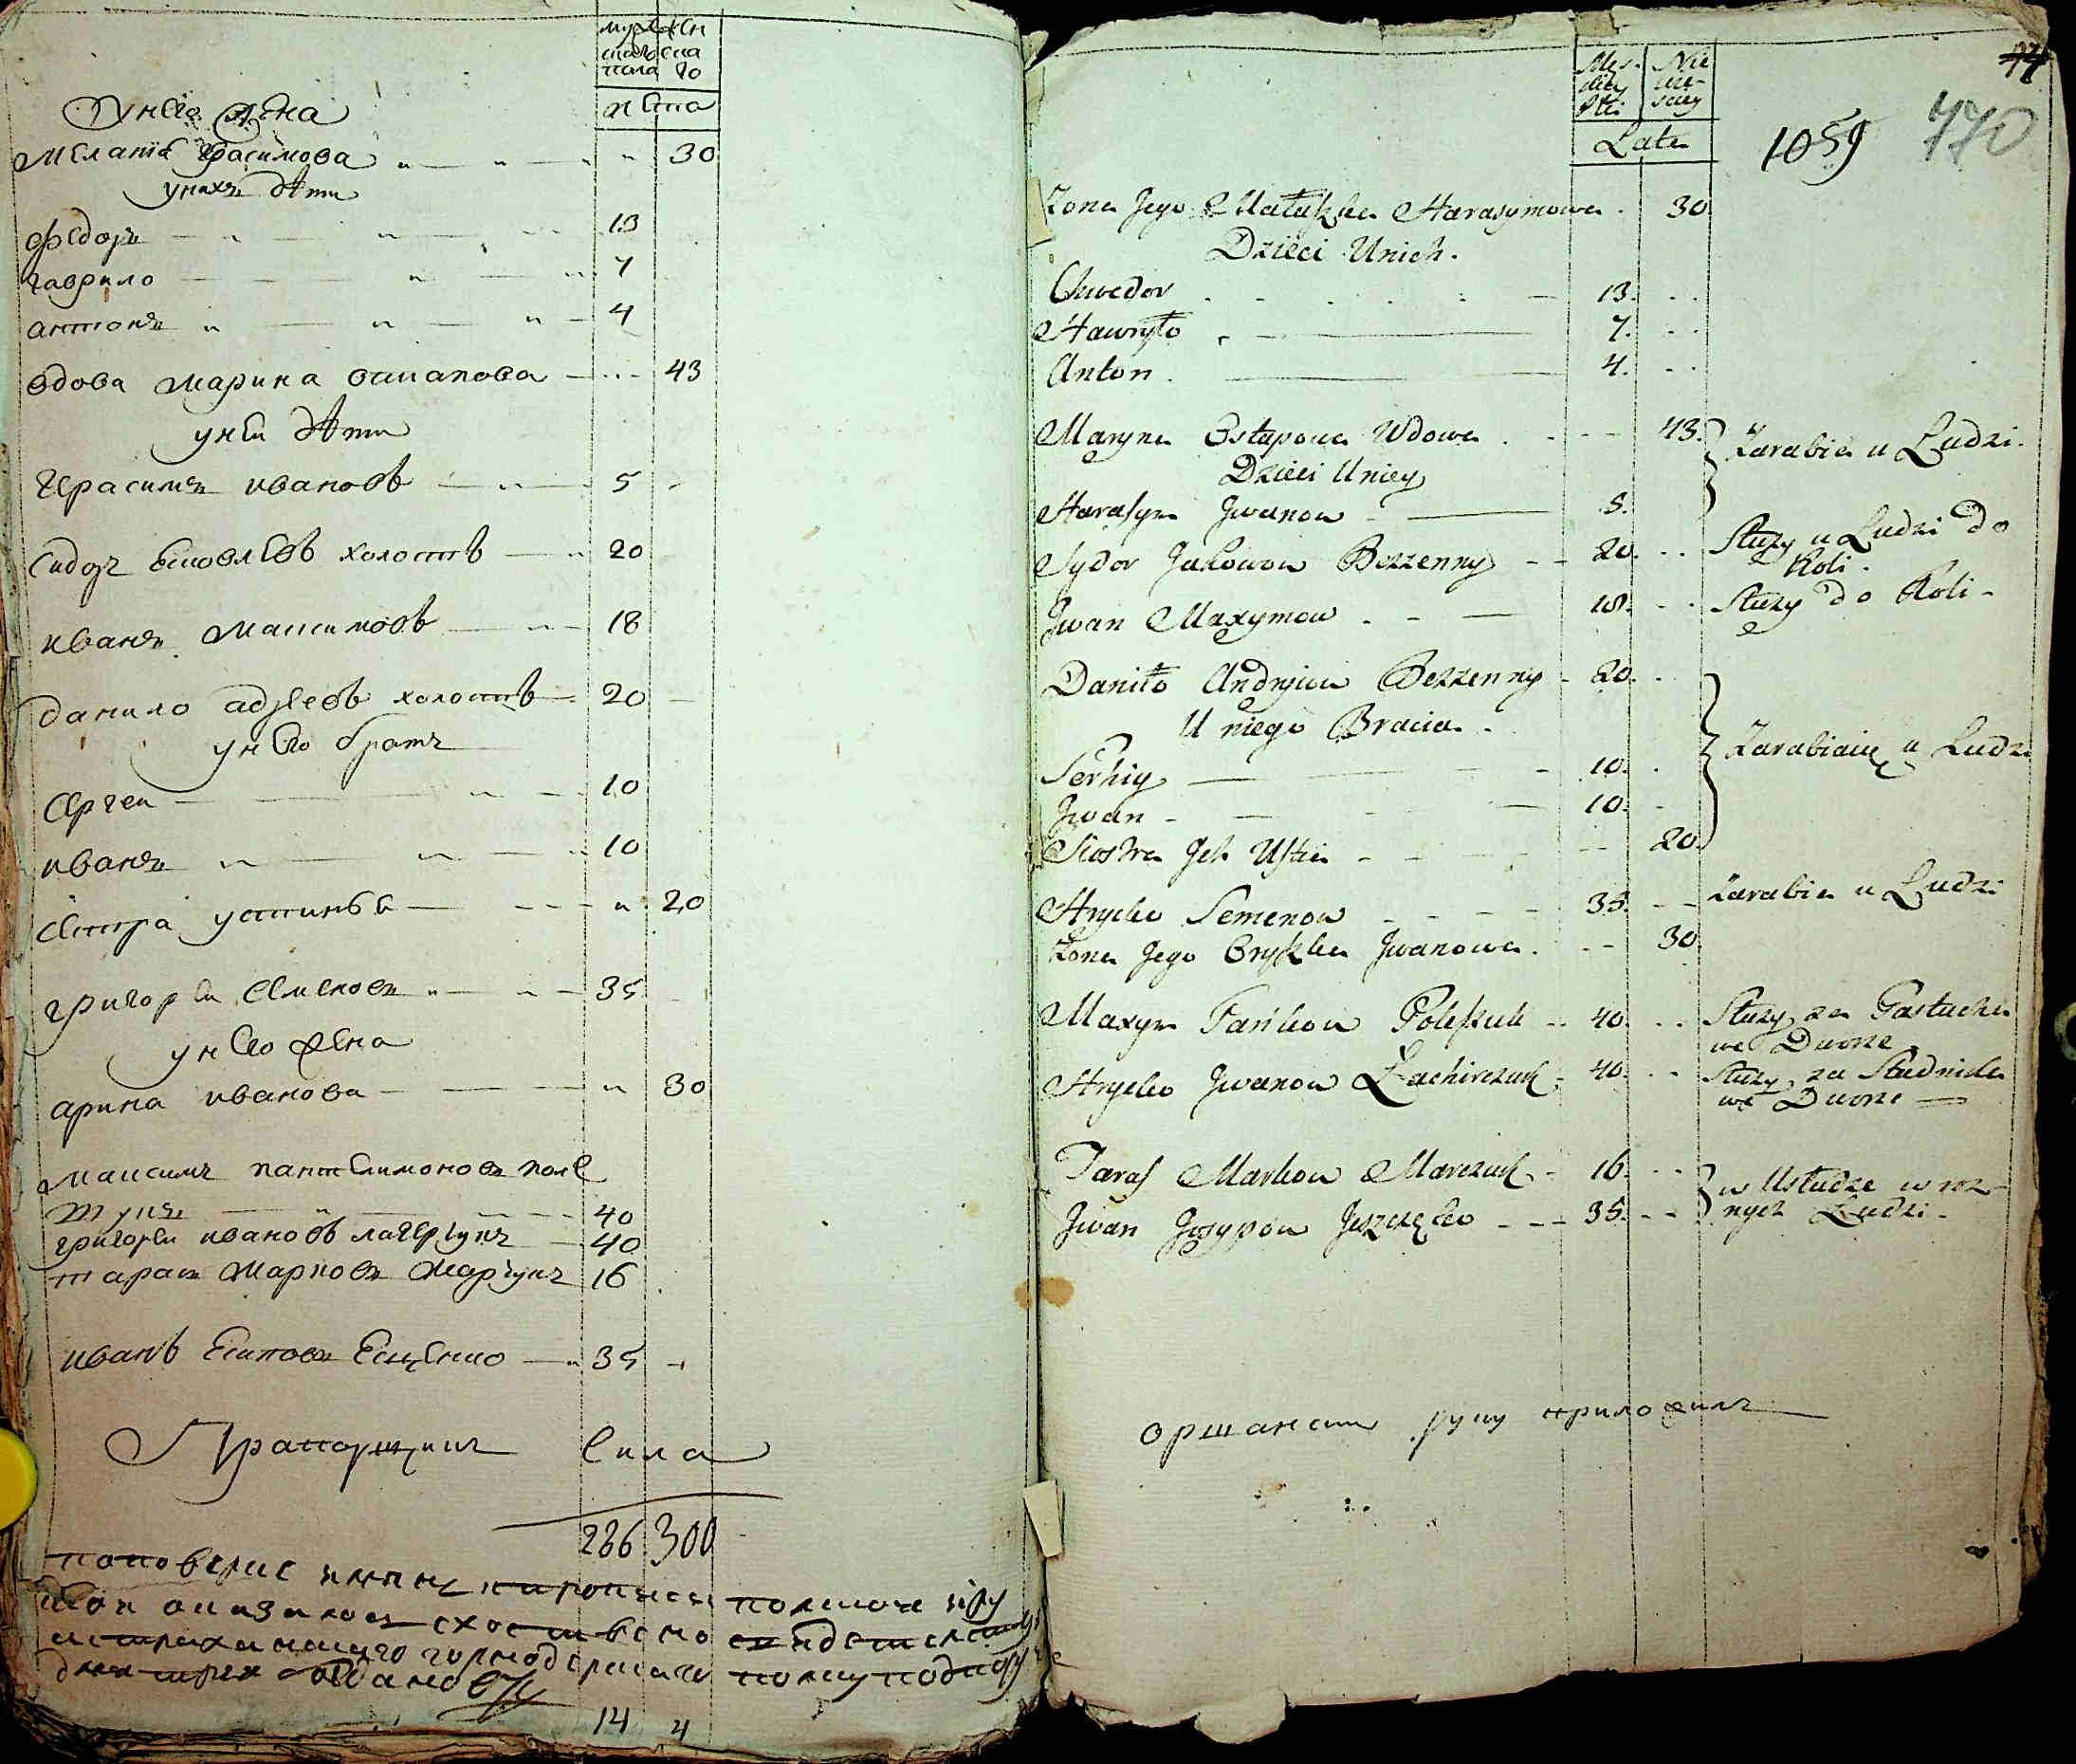 мужеска
женска
пола
го
лета
у него жена
мелания герасимова 30
у них дети
федоръ 13
гаврило 7
антонъ 4
вдова марина остапова 43
у ней дети
герасимъ ивановъ 5
сидоръ яковлевъ холостъ 20
иванъ максимовъ 18
данило адреевъ холостъ 20
у него братъ
сергеи 10
иванъ 10
сестра устинья 20
григореи семеновъ 35
у него жена
арина иванова 30
максимъ пантелимоновъ поле
шукъ 40
григореи ивановъ лагерчукъ 40
тарасъ марковъ марчукъ 16
иванъ есиповъ ещенко 35
Прапорщикъ Сила
286 300
14 4
Mes
kiey
Płci
Nie
wie-
sciey
Late
74
1059
770
Zona Jego Małaszka Harasymowa 30
Dzieci Unich.
Chwedor 13.
Hawryło 7.
Anton 4.
Maryna Ostapowa Wdowa 43.
Zarabia u Ludzi.
Dzieci Uniey
Harasym Jwanow 5.
Sydor Jakowow Bezzenny 20.
Służy u Ludzi do
Roli.
Jwan Maxymow 18.
Służy do Roli
Daniło Andryiow Bezzenny 20.
U niego Bracia.
Serhiy 10.
Zarabiaią u Ludzi
Jwan 10.
Siostra Jch Ustia 20.
Hryćko Semenow 35.
Zarabia u Ludzi
Zona Jego Oryszka Jwanowa. 30.
Maxym Pańkow Poleszuk 40.
Służy za Pastucha
we Dworze
Hryćko Jwanow Łachirczuk 40.
Służy za Studnika
we Dworze
Taras Markow Marczuk 16.
w Usłudze u roz
Jwan Josypow Jeszczeńko 35.
nych Ludzi.
оршански руку приложилъ